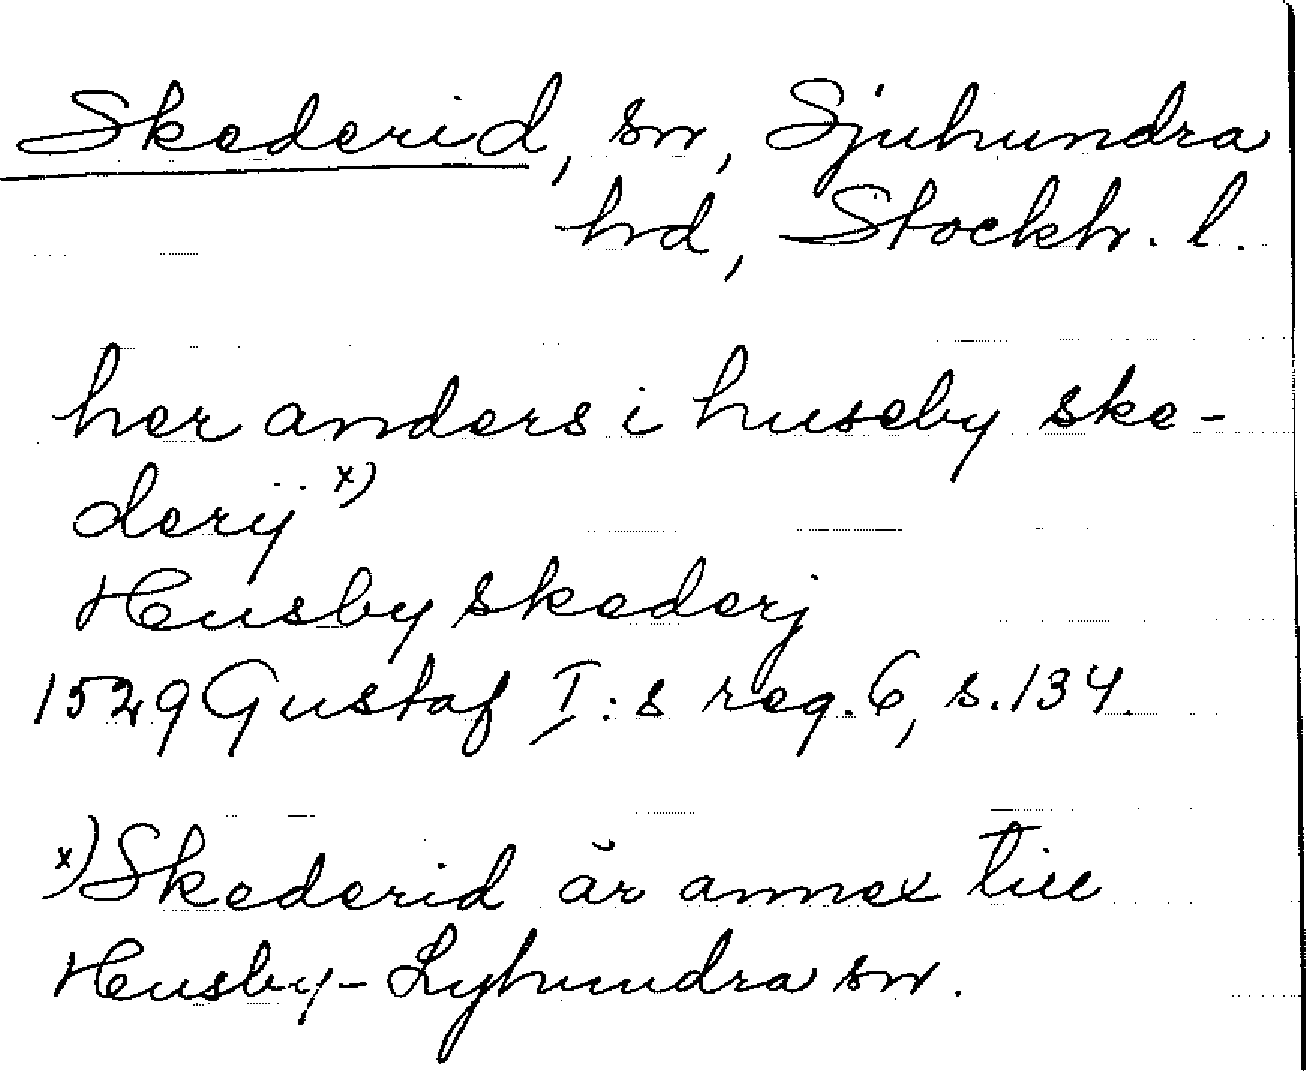 Skederid, sn, Sjuhundra
hd, Stockh. l.
her anders i huseby ske-
derÿ x)
Husby skederj
1529 Gustaf I:s reg. 6, s. 134.
x) Skederid är annex till
Husby-Lyhundra sn.